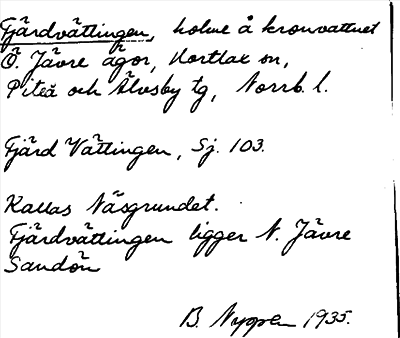 Fjärdvättingen, holme å kronvattnet
Ö. Jävre ägor, Hortlax sn,
Piteå och Älvsby tg, Norrb. l.
Fjärd Vättingen, Sj. 103.
Kallas Näsgrundet.
Fjärdvättingen ligger N. Jävre
Sandön
B. Nygren 1935.